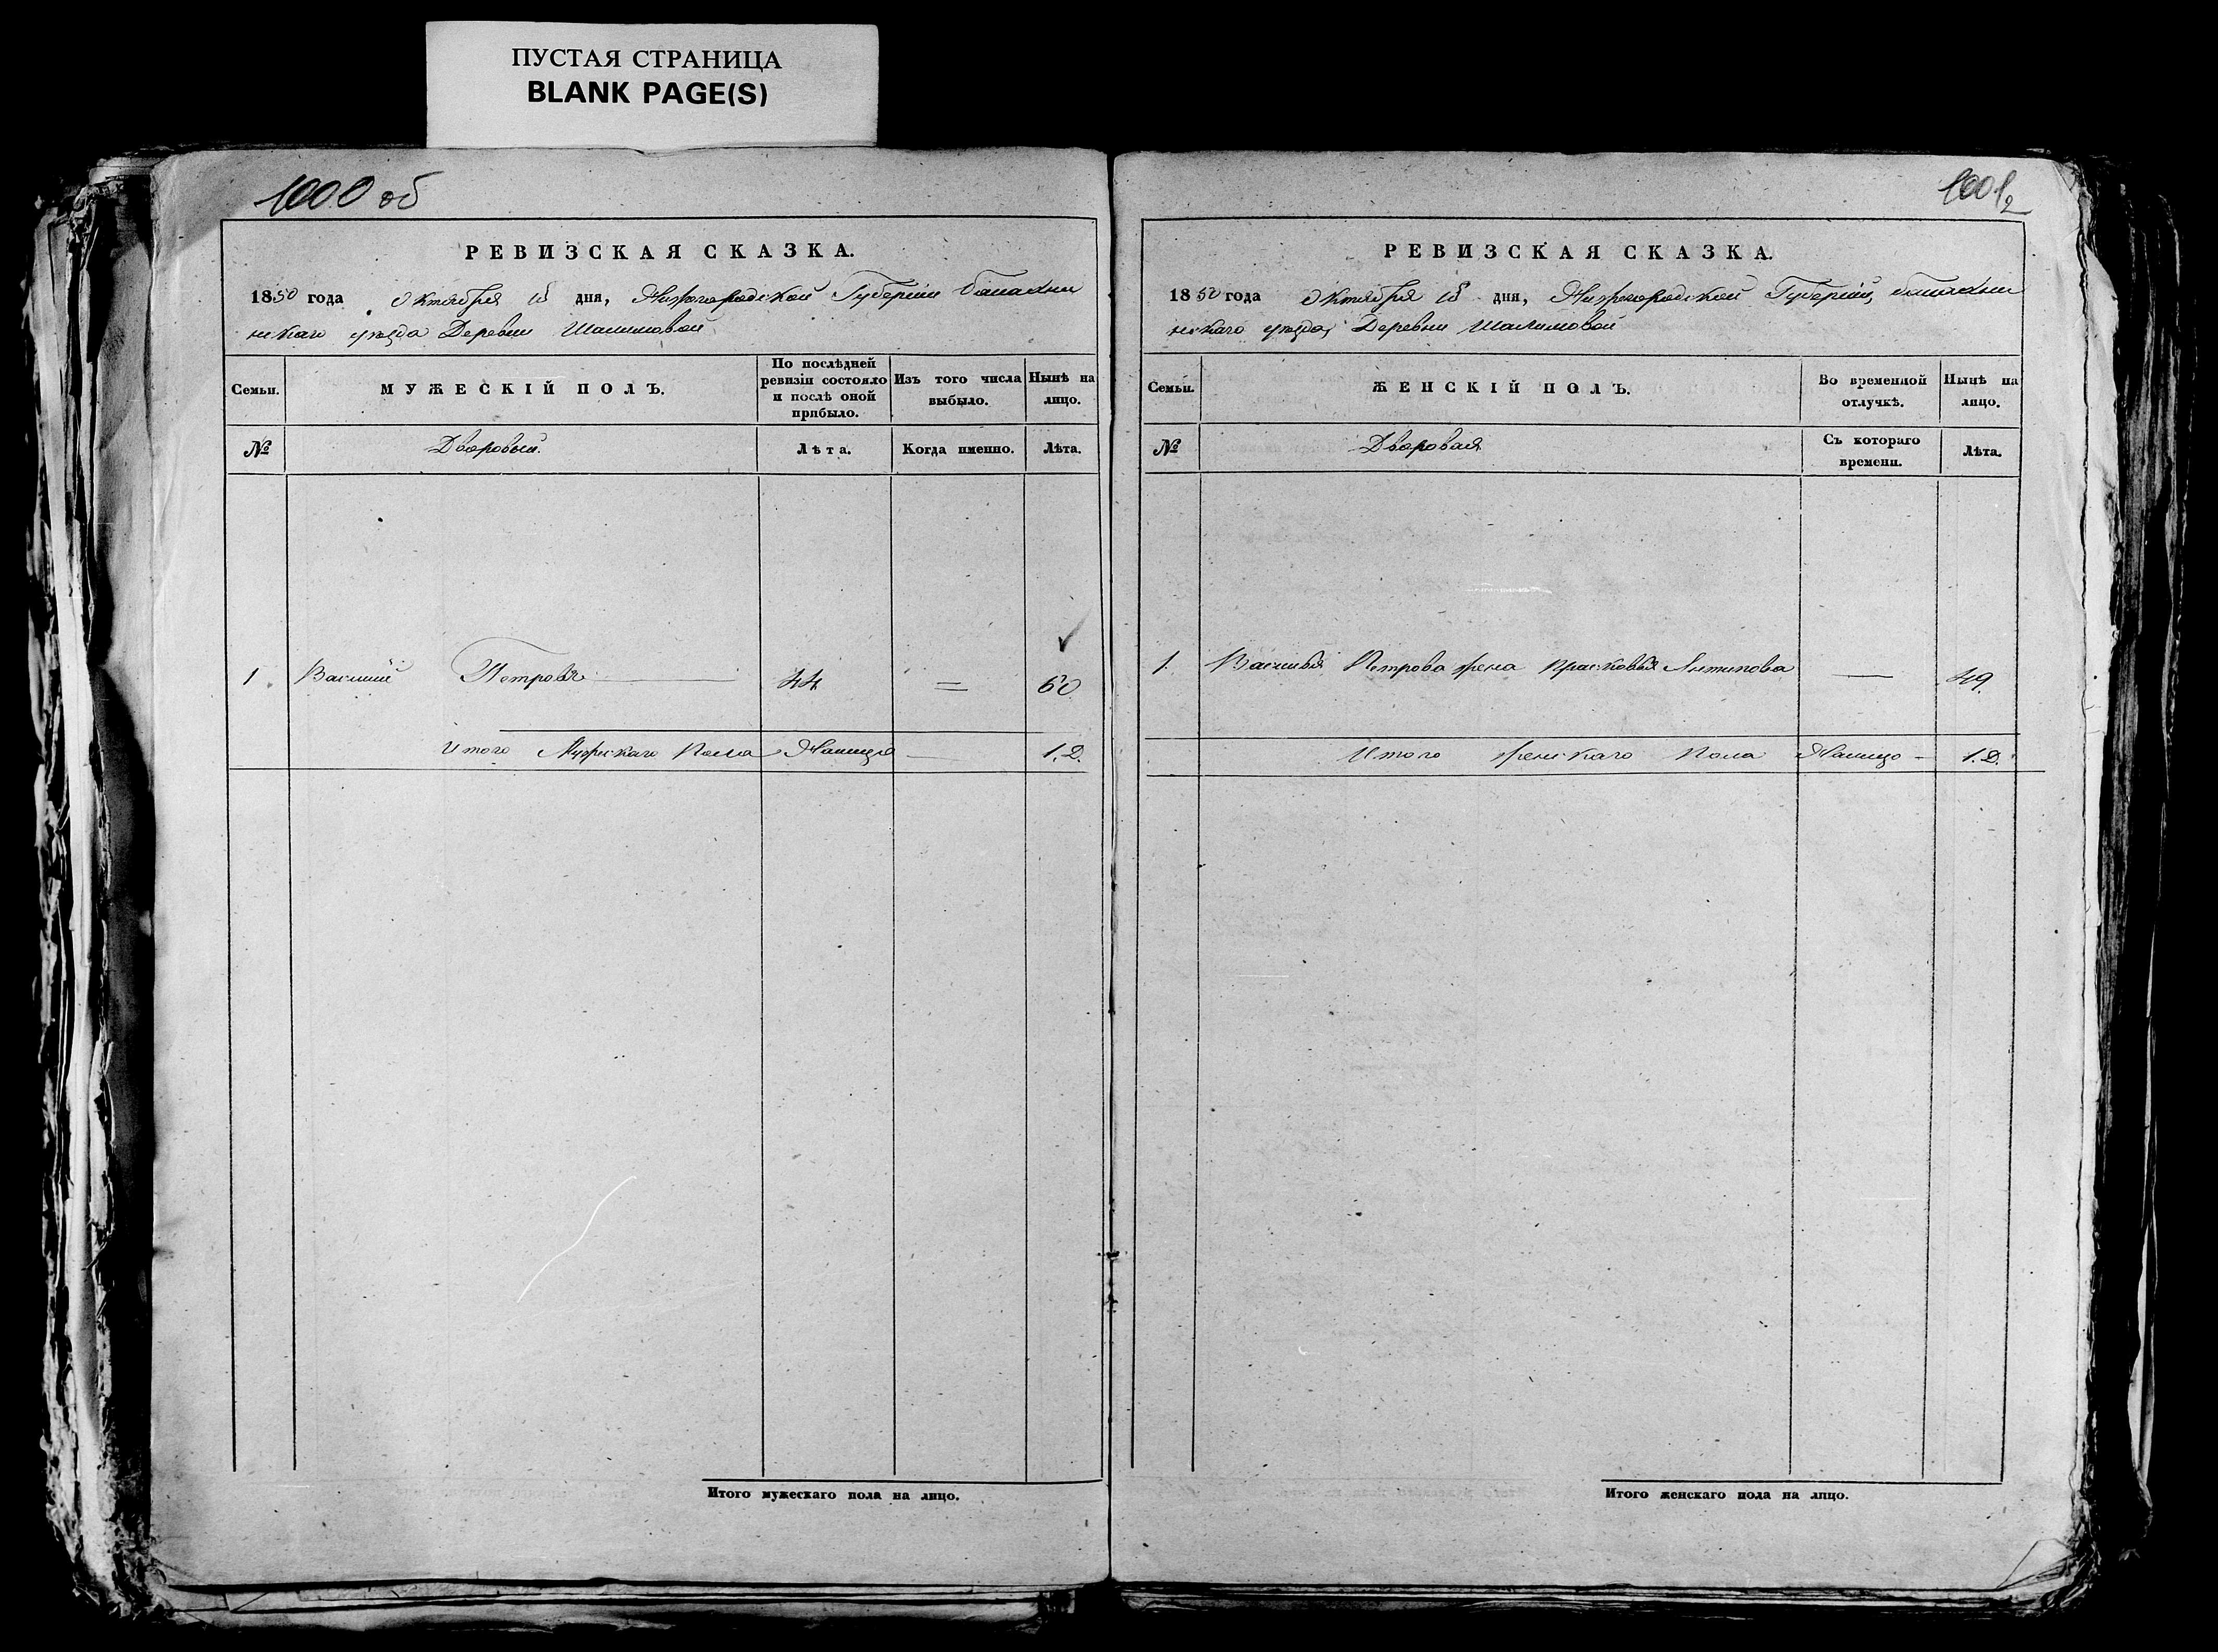 ПУСТАЯ СТРАНИЦА
BLANK PAGE(S)
1000 об
РЕВИЗСКАЯ СКАЗКА.
1850 года Октября 18 дня, Нижегородской Губернии Балахни
нскаго уезда Деревни Шалимовой
Семьи.
МУЖЕСКІЙ ПОЛЪ.
По послѣдней ревизіи состояло и послѣ оной прибыло.
Изъ того числа выбыло.
Нынѣ на лицо.
№
Дворовый.
Лѣта.
Когда именно.
Лѣта.
1 Василий Петровъ 44 = 60
Итого Мужескаго Пола Налицо 1. Д.
Итого мужескаго пола на лицо.
1001
2
РЕВИЗСКАЯ СКАЗКА.
1850 года Октября 18 дня, Нижегородской Губернии, Балахни
нскаго уезда, Деревни Шалимовой
Семьи.
ЖЕНСКІЙ ПОЛЪ.
Во временной отлучкѣ.
Нынѣ на лицо.
№
Дворовая
Съ котораго времени.
Лѣта.
1. Василья Петрова жена Прасковья — 49.
Итого женскаго Пола Налицо - 1. Д.
Итого женскаго пола на лицо.